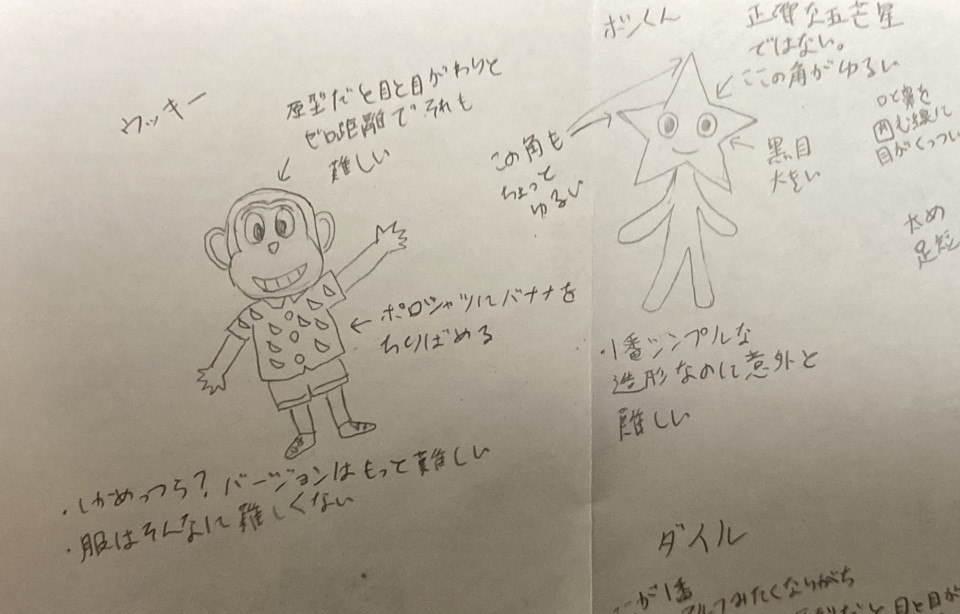 ウッキー
原型だと目と目がわりと
ゼロ距離でそれも
難しい
ポロシャツにバナナを
ちりばめる
・しかめっつら？バージョンはもっと難しい
・服はそんなに難しくない
ボンくん
正確な五芒星
ではない。
ここの角がゆるい
この角も
ちょっと
ゆるい
黒目
大きい
口と鼻を
囲む線に
目がくっつい
太め
足短
・1番シンプルな
造形なのに意外と
難しい
ダイル
が1番
みたくなりがち
だと目と目が